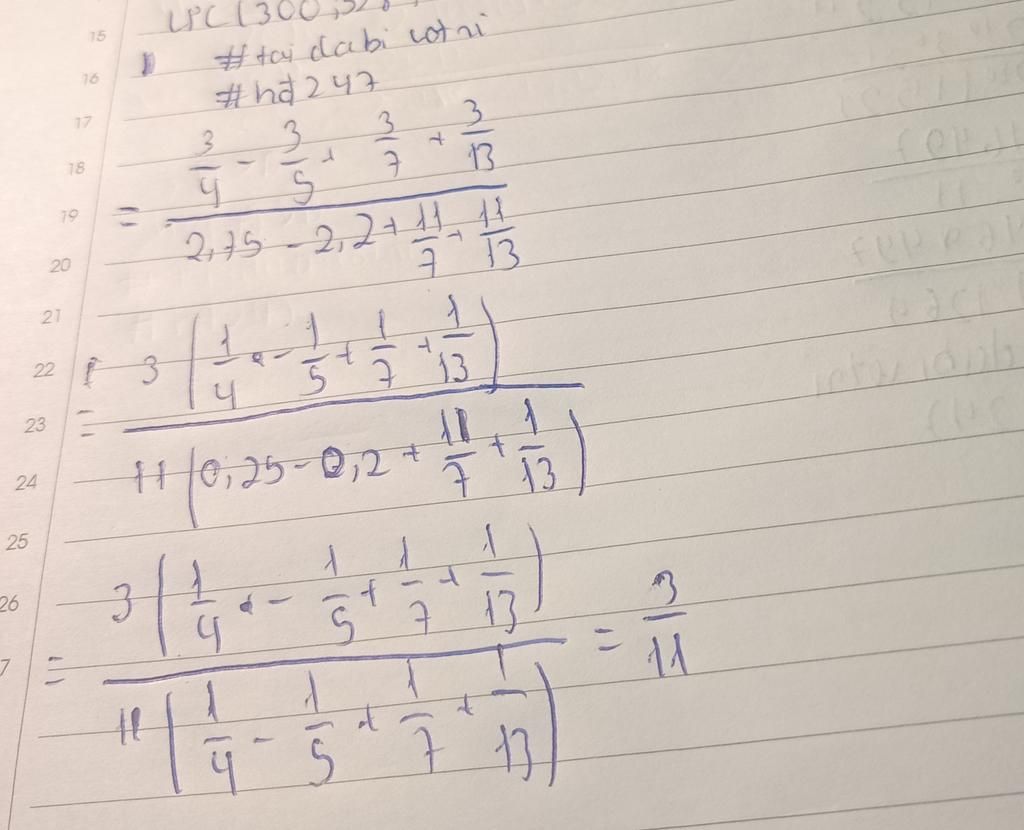 15
LPC(300,
# tai dabi votri
16
# hd247
17
18
19
= (3/4 - 3/5 + 3/7 + 3/13) / (2,75 - 2,2 + 11/7 + 11/13)
20
21
22
23
= 3(1/4 - 1/5 + 1/7 + 1/13) / 11(0,25 - 0,2 + 11/7 + 1/13)
24
25
26
7
= 3(1/4 - 1/5 + 1/7 + 1/13) / 11(1/4 - 1/5 + 1/7 + 1/13) = 3/11